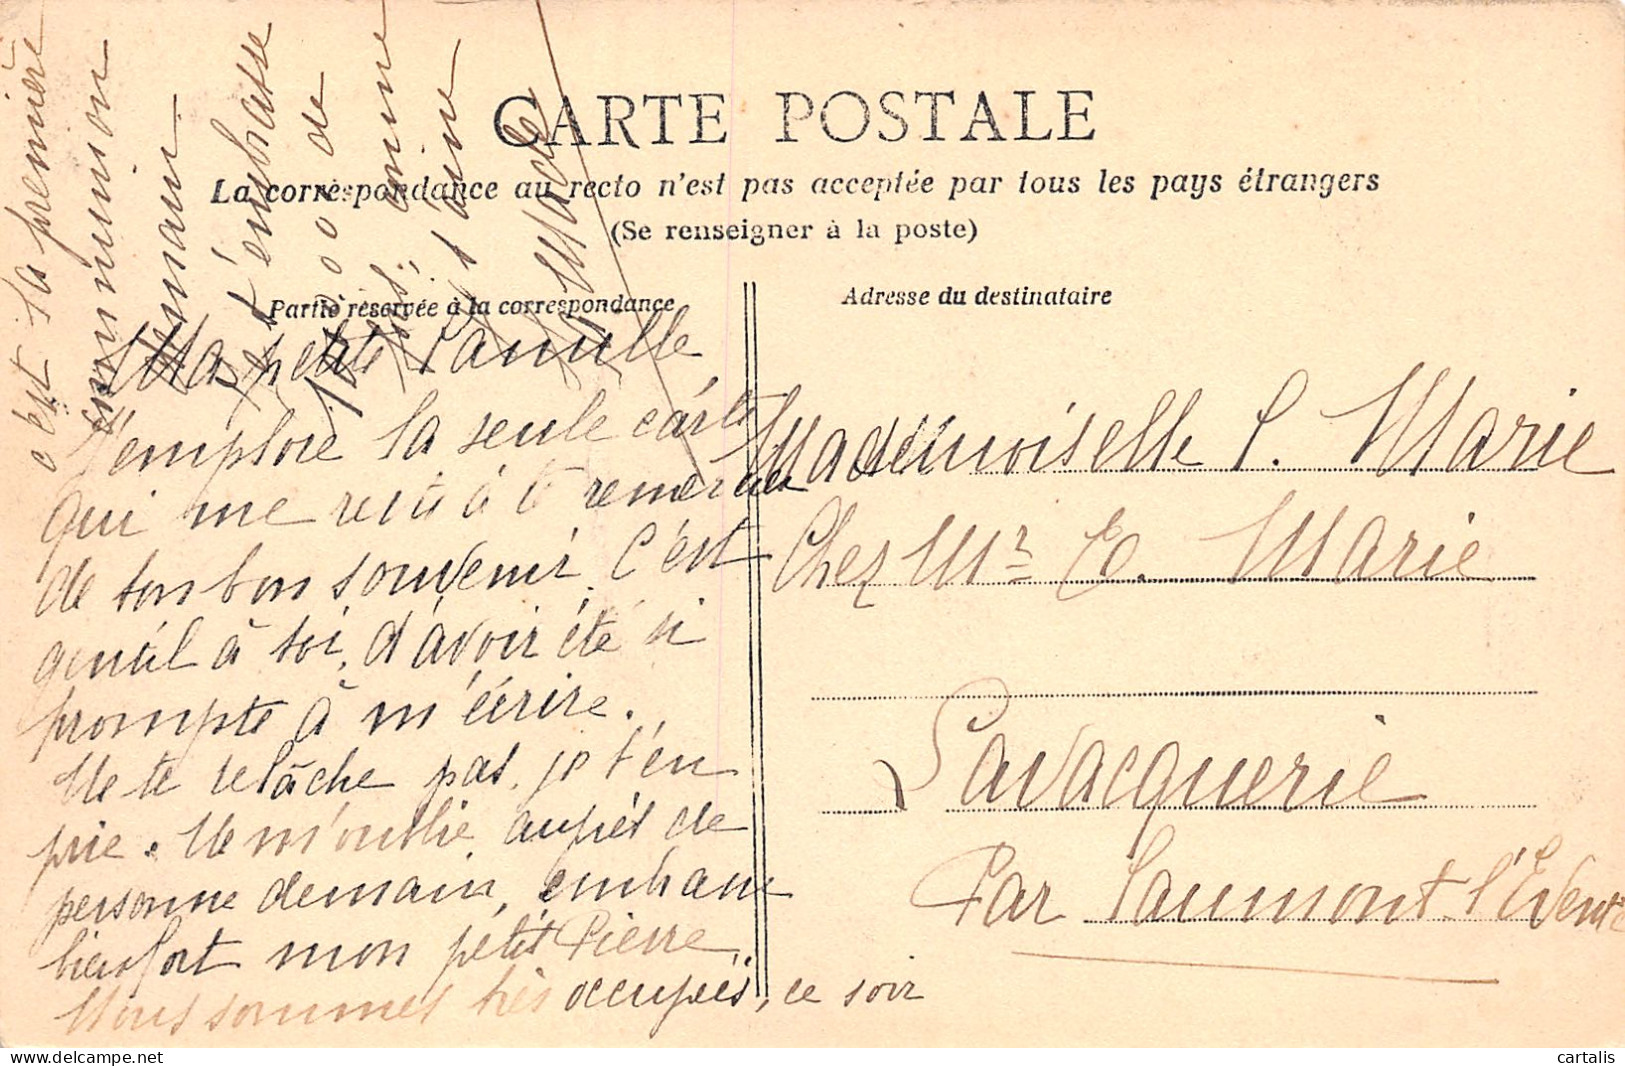 CARTE POSTALE
La correspondance au recto n'est pas acceptée par tous les pays étrangers
(Se renseigner à la poste)
Partie réservée à la correspondance
Ma petite Camille,
J'emploie la seule carte
qui me reste à te remercier
de ton bon souvenir. C'est
gentil à toi, d'avoir été si
prompte à m'écrire.
Ne te relâche pas, je t'en
prie. Ne m'oublie auprès de
personne demain, embrasse
bien fort mon petit Pierre.
Nous sommes très occupées, ce soir
c'est la première
communion
demain
t'embrasse
de
comme
t'aime
Adresse du destinataire
Mademoiselle C. Marie
Chez Mr E. Marie
Lavacquerie
Par Caumont l'Eventé
cartalis